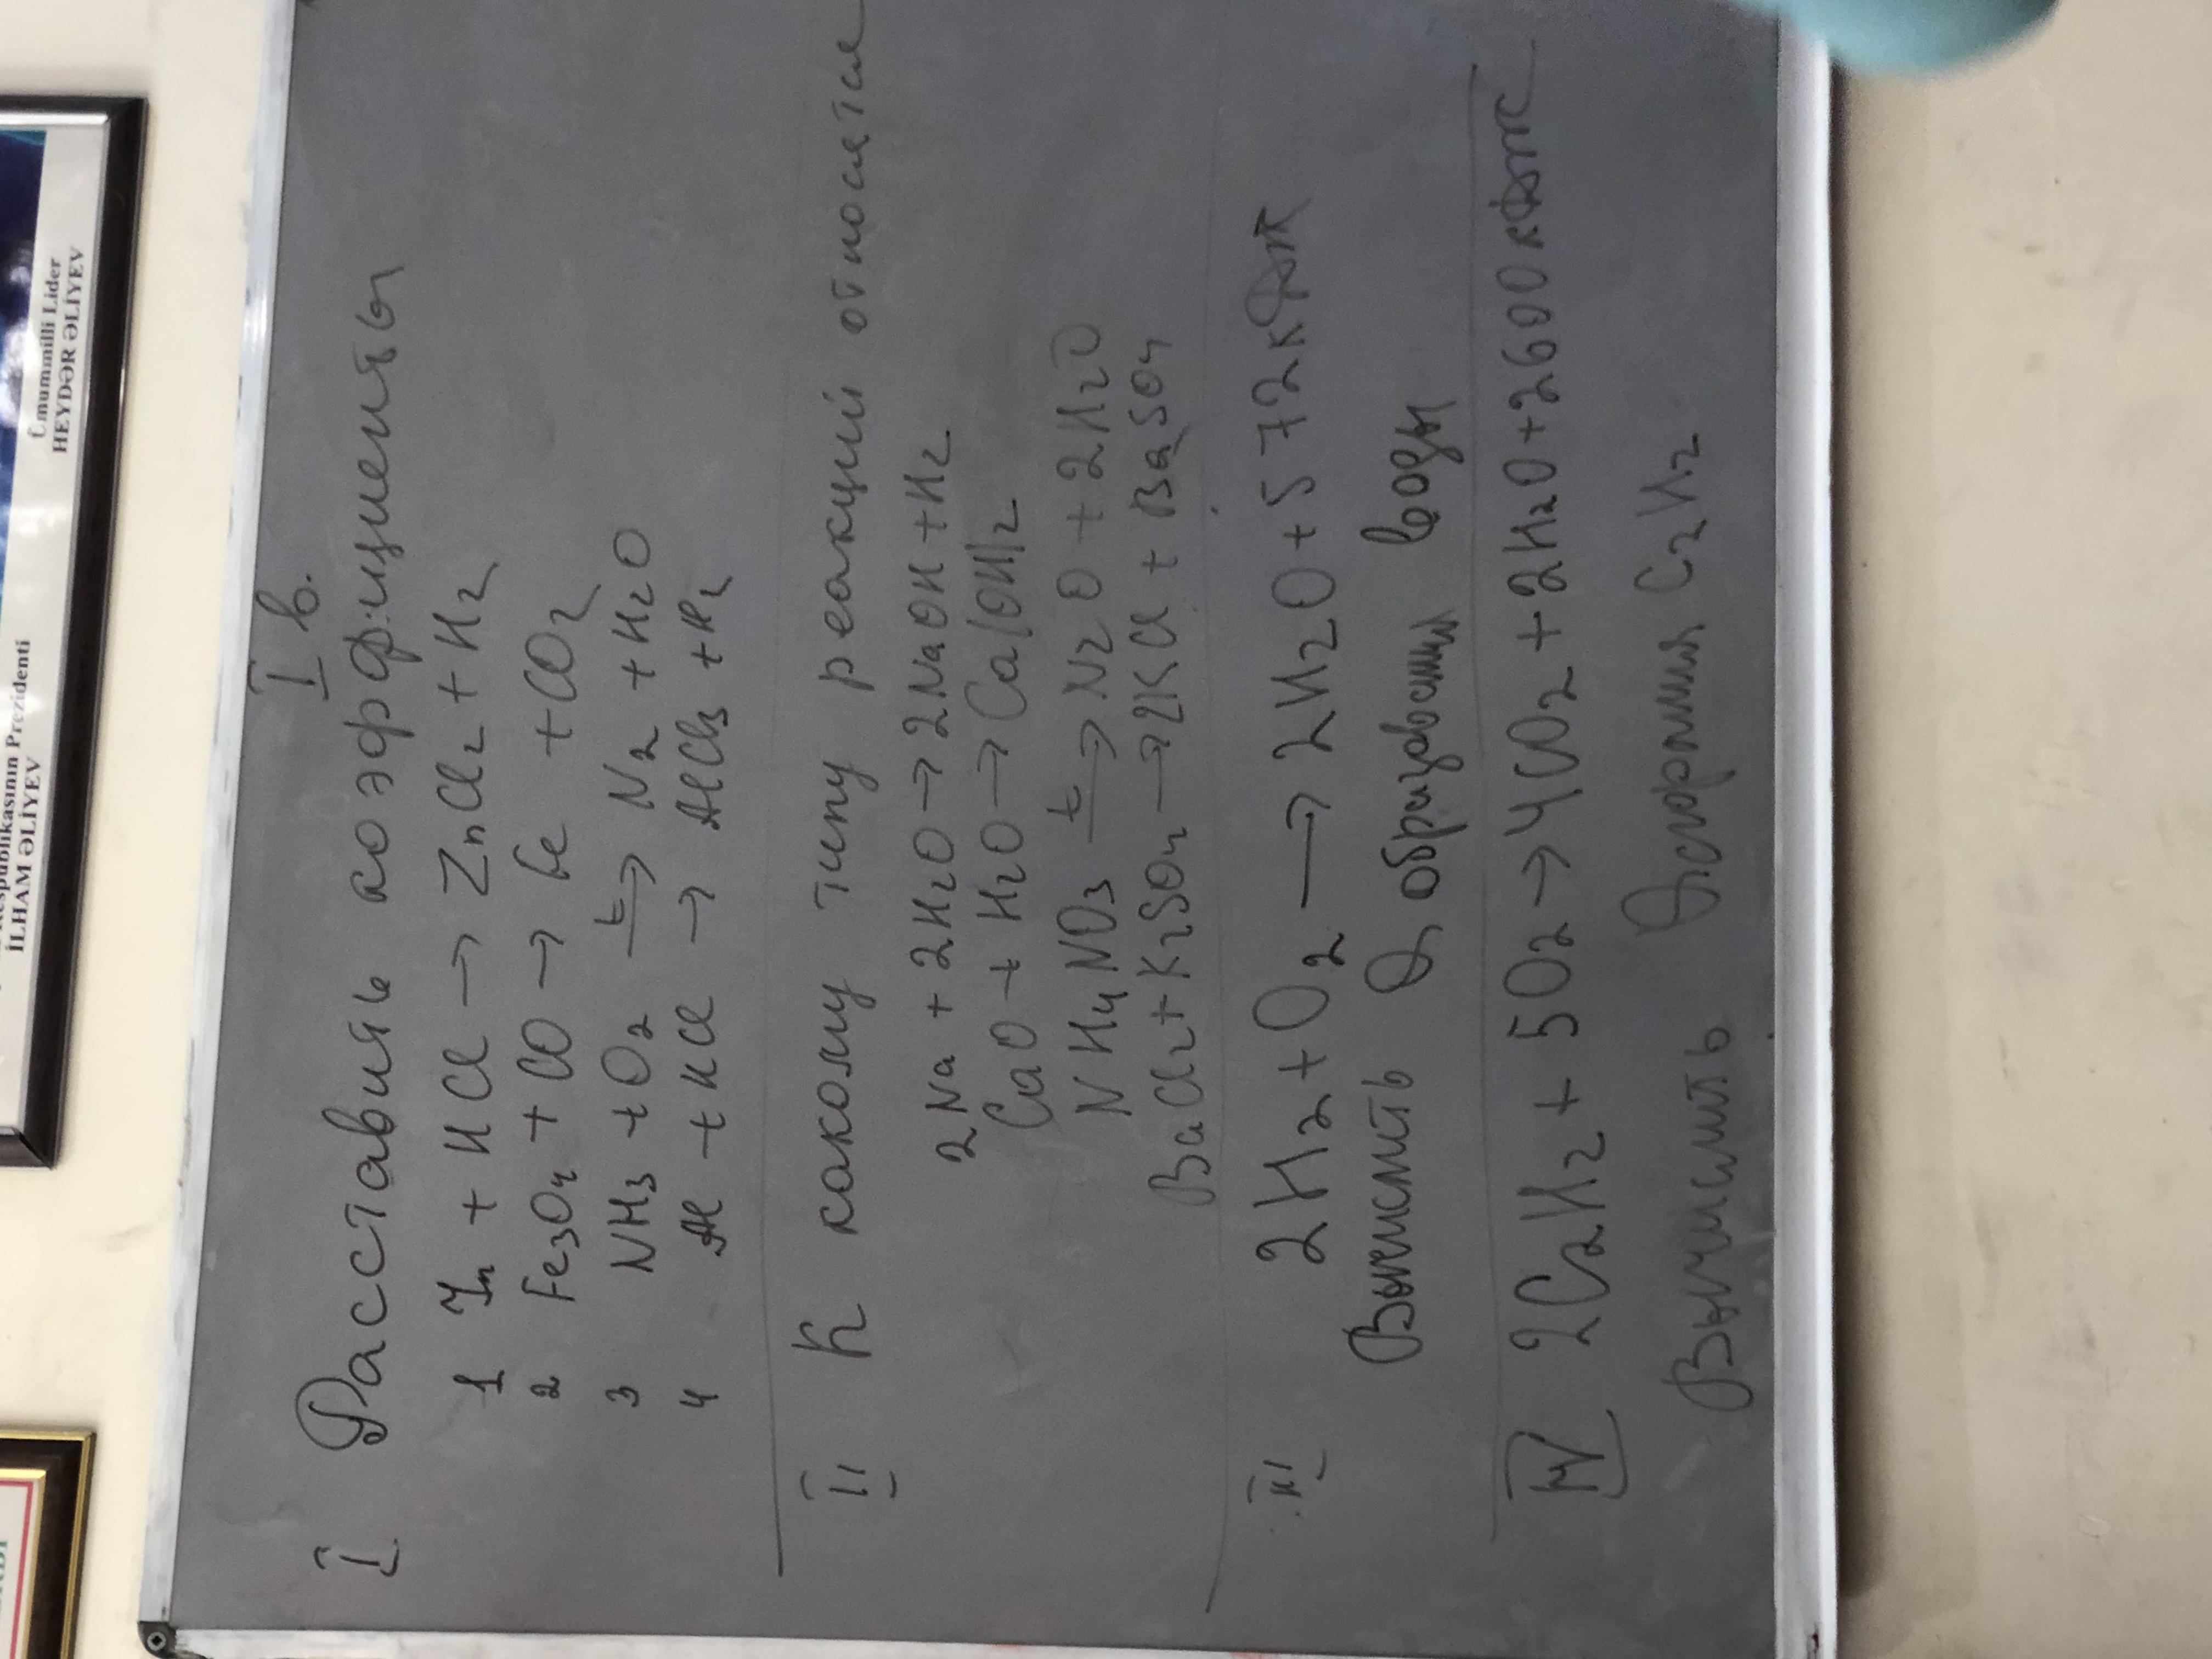 Respublikasının Prezidenti
İLHAM ƏLİYEV
Ümummilli Lider
HEYDƏR ƏLİYEV
I в.
I Расставить коэффициенты
1 Zn + HCl → ZnCl₂ + H₂
2 Fe₃O₄ + CO → Fe + CO₂
3 NH₃ + O₂ t→ N₂ + H₂O
4 Al + HCl → AlCl₃ + H₂
II К какому типу реакций относятся
2Na + 2H₂O → 2NaOH + H₂
CaO + H₂O → Ca(OH)₂
NH₄NO₃ t→ N₂O + 2H₂O
BaCl₂ + K₂SO₄ → 2KCl + BaSO₄
III 2H₂ + O₂ → 2H₂O + 572кДж
Вычислить Q образования воды
IV 2C₂H₂ + 5O₂ → 4CO₂ + 2H₂O + 2600кДж
Вычислить Qсгорания C₂H₂